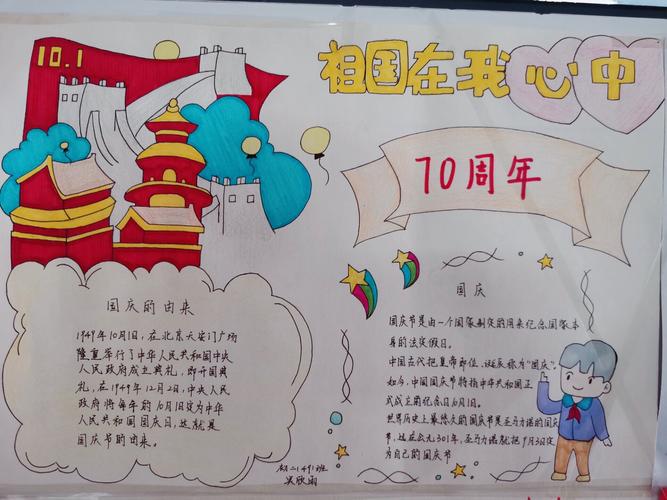 10.1
祖国在我心中
70周年
国庆的由来
1949年10月1日,在北京天安门广场
隆重举行了中华人民共和国中央
人民政府成立典礼,即开国典
礼,在1949年12月2日,中央人民
政府将每年的10月1日定为中华
人民共和国国庆日,这就是
国庆节的由来。
国庆
国庆节是由一个国家制定的用来纪念国家本
身的法定假日。
中国古代把皇帝即位、诞辰称为“国庆”。
如今,中国国庆节特指中华人民共和国正
式成立的纪念日10月1日。
世界历史上最悠久的国庆节是圣马力诺的国庆
节,远在公元301年,圣马力诺就把9月3日定
为自己的国庆节
1491班
吴欣雨